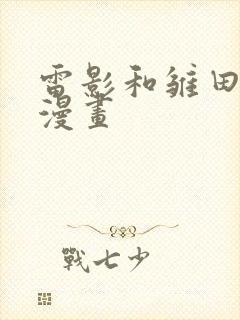 雷影和雏田
漫畫
戰七少